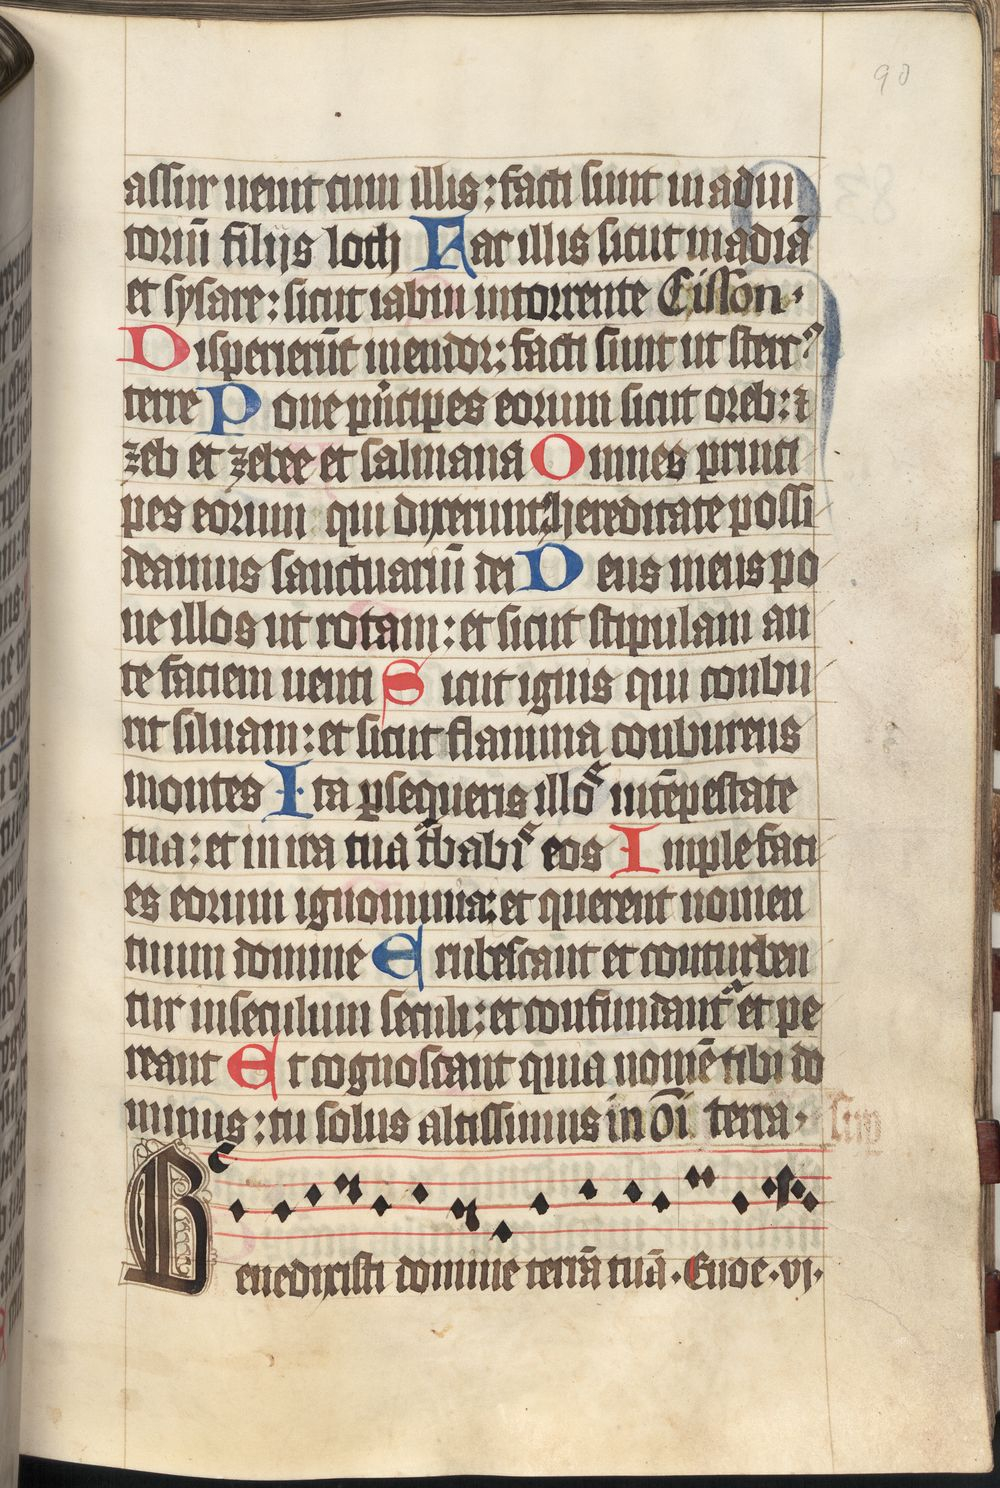 90
assur uenit cum illis : facti sunt in adiu
toriū filijs loth Fac illis sicut madiā
et sysare : sicut iabin in torrente Cisson .
Disperierūt in endor : facti sunt ut sterc⁹
terre Pone pⁱncipes eorum sicut oreb : ⁊
zeb et zebee et salmana Omnes princi
pes eorum qui dixerunt : hereditate possi
deamus sanctuariū dei Deus meus po
ne illos ut rotam : et sicut stipulam an
te faciem uenti Sicut ignis qui conbu
rit siluam : et sicut flamma conburens
montes Ita ꝑsequeris illoˢ in tēpestate
tua : et in ira tua t̄babiˢ eos Imple faci
es eorum ignominia : et querent nomen
tuum domine Erubescant et conturben
tur in seculum seculi : et confundantʳ et pe
reant Et cognoscant quia nomē tibi do
minus : tu solus altissimus in ōi terra .
Benedixisti domine terrā tuā . Euoe . vi .